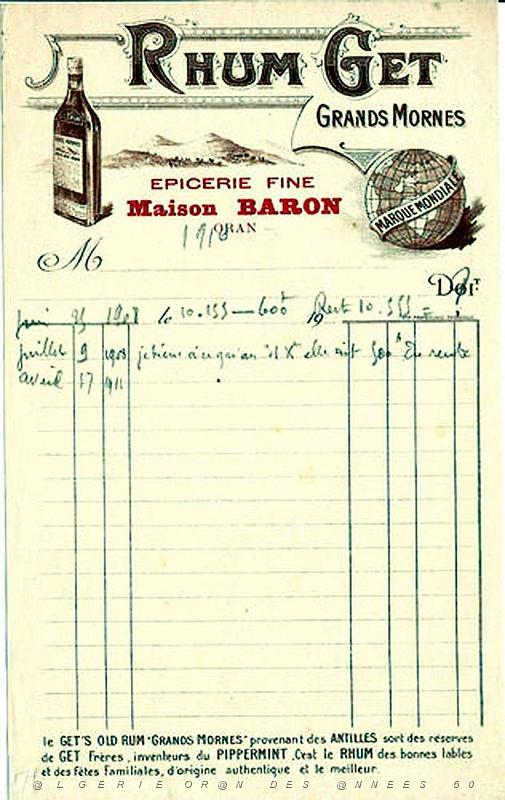 RHUM GET
GRANDS MORNES
EPICERIE FINE
Maison BARON
ORAN
MARQUE MONDIALE
M
DOIT
Juin 25 1908 le 10.155 — 600 Rest 10.555
19
juillet 9 1908 elle 500 En rente
avril 17 1911
le GET'S OLD RUM "GRANDS MORNES" provenant des ANTILLES sort des réserves
de GET Frères, inventeurs du PIPPERMINT. C'est le RHUM des bonnes tables
et des fêtes familiales, d'origine authentique et le meilleur.
@LGERIE OR@N DES @NNEES 50